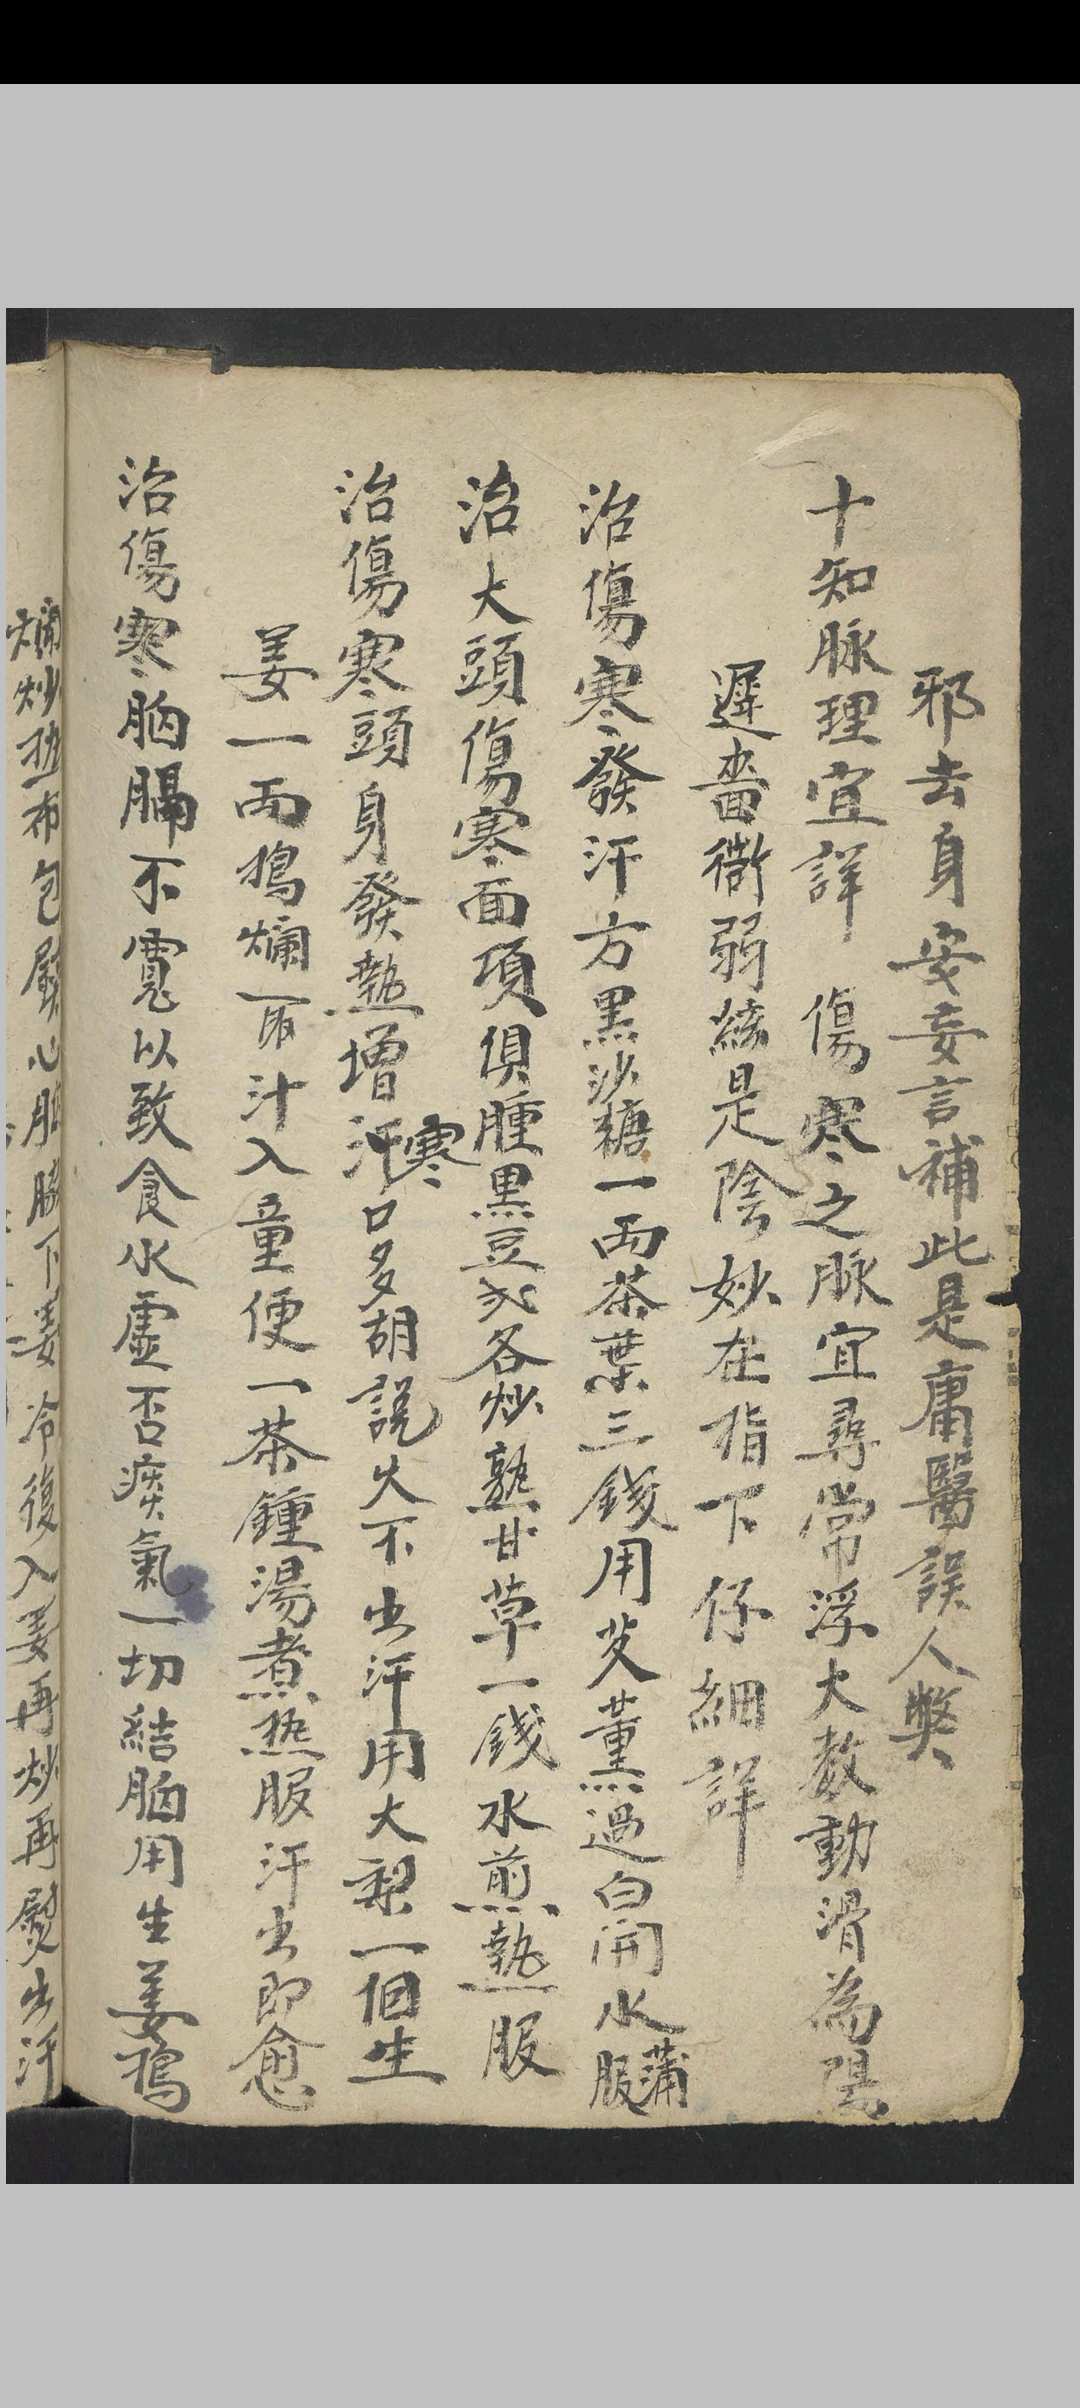 邪去身安妄言補此是庸醫誤人獘
十知脉理宜詳 傷寒之脉宜尋常浮大数動滑為陽
遲嗇衖弱絃是陰妙在指下仔細詳
治傷寒發汗方黑沙糖一两茶葉三錢用艾薰過白開水服蒲
治大頭傷寒面項俱腫黑豆弍各炒熟甘草一錢水煎熱服
治傷寒頭身發熱增汗寒口多胡説火不出汗用大梨一個生
姜一两搗爛取汁入童便一茶鍾湯煮热服汗出即愈
治傷寒胸膈不寬以致食水虛否痰氣一切結胸用生姜搗
爛炒热布包熨心胸脇下姜冷復入姜再炒再熨出汗